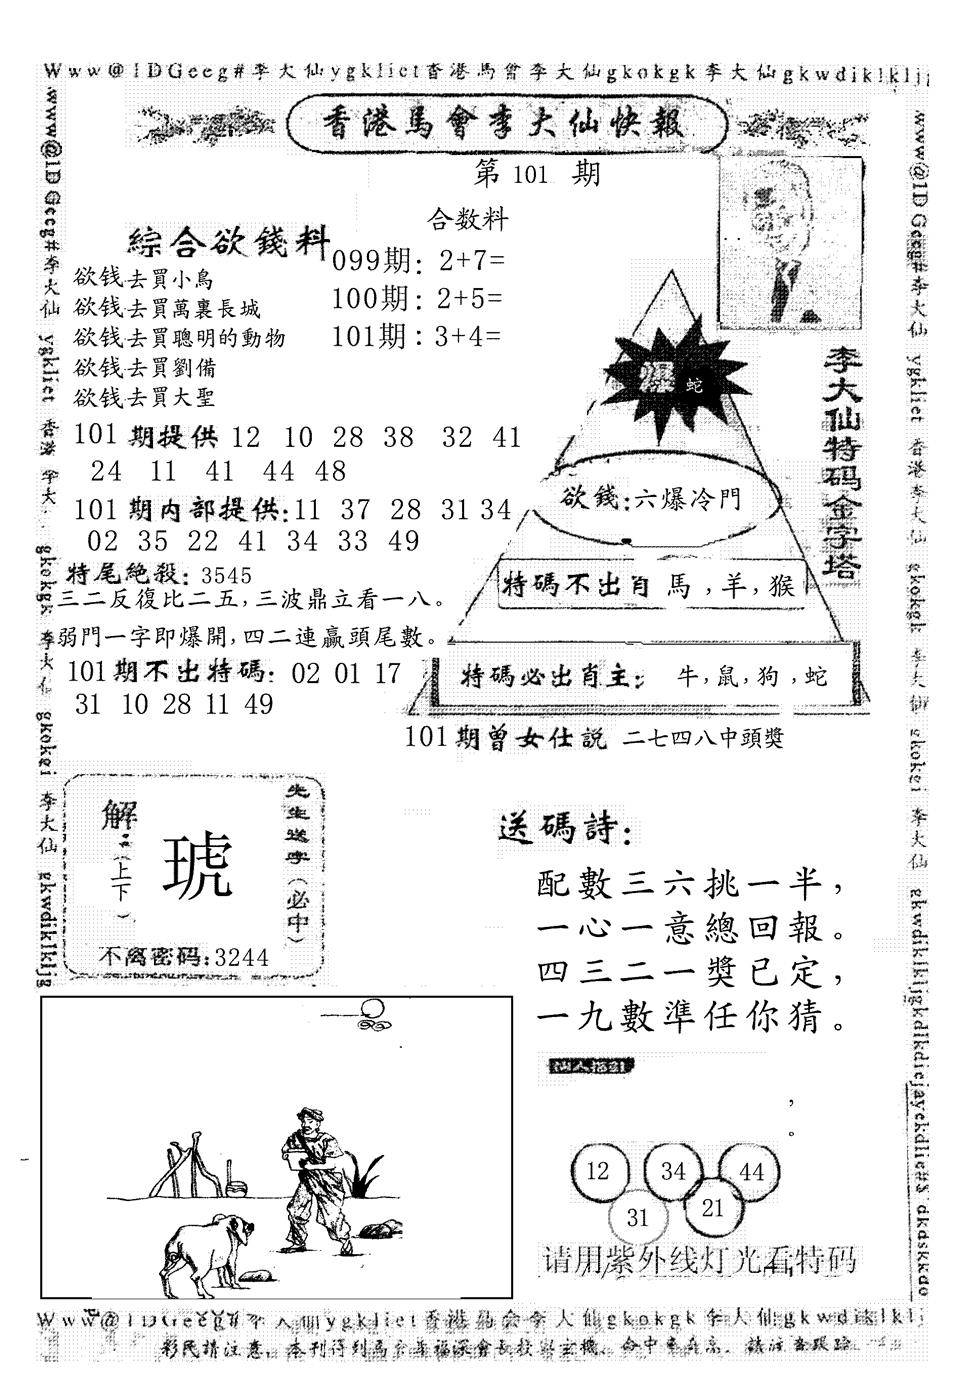 Www@1DGeeg#李大仙ygkliet香港馬會李大仙gkokgk李大仙gkwdiklkljg
香港馬會李大仙快報
第 101 期
合数料
綜合欲錢料
099期: 2+7=
100期: 2+5=
101期: 3+4=
欲钱去買小鳥
欲钱去買萬裏長城
欲钱去買聰明的動物
欲钱去買劉備
欲钱去買大聖
101 期提供 12 10 28 38 32 41
24 11 41 44 48
101 期内部提供:11 37 28 31 34
02 35 22 41 34 33 49
特尾絶殺: 3545
三二反復比二五,三波鼎立看一八。
弱門一字即爆開,四二連贏頭尾數。
101 期不出特碼: 02 01 17
31 10 28 11 49
爆 蛇
欲錢:六爆冷門
特碼不出肖 馬,羊,猴
特碼必出肖主: 牛,鼠,狗,蛇
李大仙特码金字塔
101 期曾女仕説 二七四八中頭獎
解:(上下)
琥
先生送字(必中)
不离密码:3244
送碼詩:
配數三六挑一半,
一心一意總回報。
四三二一獎已定,
一九數準任你猜。
,
。
12 34 44
31 21
请用紫外线灯光看特码
www@1DGeeg#李大仙 ygkliet 香港 李大 gkokgk 李大仙 gkokei 李大仙 gkwdiklkljg
www@1DGeeg#李大仙 ygkliet 香港李大仙 gkokgk 李大仙 gkokei 李大仙 gkwdiklkljgkdlkdiejayekdlie#$ dkdskkdo
Www@1DGeeg#李大仙ygkliet香港馬会李大仙gkokgk李大仙gkwdiklklj
彩民請注意。本刊得到馬会